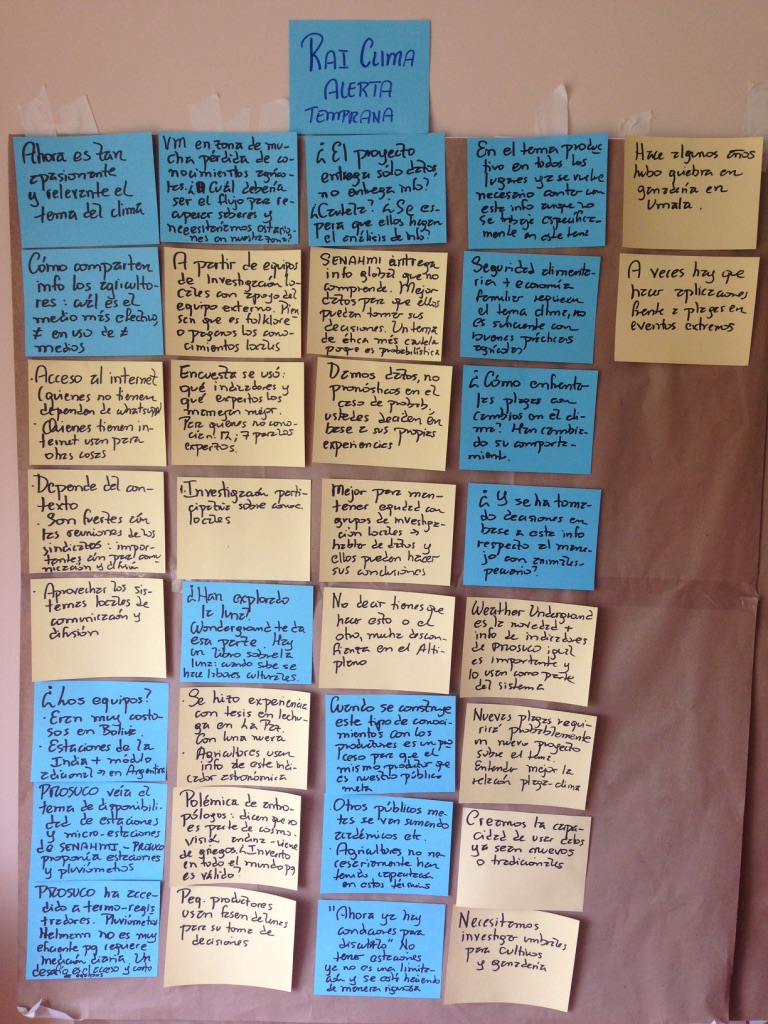 RAI CLIMA
ALERTA
TEMPRANA
Ahora es tan
apasionante
y relevante el
tema del clima
Cómo comparten
info los agricultores
: cuál es el
medio más efectivo,
≠ en uso de ≠
medios
· Acceso al internet
(quienes no tienen
dependen de whatsapp)
· Quienes tienen in-
ternet usan para
otras cosas
· Depende del con-
texto
· Son fuertes aún
las reuniones de los
sindicatos: impor-
tantes aún para comu-
nicación y difusión
· Aprovechar los sis-
temas locales de
comunicación y
difusión
¿Los equipos?
· Eran muy costo-
sos en Bolivia
· Estaciones de la
India + módulo
adicional → en Argentina
PROSUCO veía el
tema de disponibili-
dad de estaciones
y micro-estaciones
de SENAHMI - PROSUCO
proponía estaciones
y pluviómetros
PROSUCO ha acce-
dido a termo-regis
tradores. Pluviómetros
Helmann no es muy
eficiente pq requiere
medición diaria. Un
desafío es el acceso y costo
VM en zona de mu
cha pérdida de co-
nocimientos agríco-
las. ¿Cuál debería
ser el flujo para re-
cuperar saberes y
necesitaríamos estacio-
nes en nuestra zona?
A partir de equipos
de Investigación lo-
cales con apoyo del
equipo externo. Pien
san que es folklore
o paganos los cono-
cimientos locales
Encuesta se usó:
qué indicadores y
qué expertos los
manejan mejor.
Para quienes no cono-
cían 12; 7 para los
expertos.
· Investigación parti-
cipativa sobre conoc.
locales
¿Han explorado
la luna?
Wonderground te da
esa parte. Hay
un libro sobre la
luna: cuando sube se
hace labores culturales.
· Se hizo experiencia
con tesis en lechu-
ga en La Paz
con luna nueva
· Agricultores usan
info de este indi-
cador astronómico
Polémica de antro-
pólogos: dicen que no
es parte de cosmo-
visión andina - viene
de griegos. ¿Invento
en todo el mundo pq
es válido?
Peq. productores
usan fases de lunes
para su toma de
decisiones
¿El proyecto
entrega sólo datos,
no entrega info?
¿Cautela? ¿Se es-
pera que ellos hagan
el análisis de info?
SENAHMI entrega
info global que no
comprende. Mejor
datos para que ellos
puedan tomar sus
decisiones. Un tema
de ética más cautela
porque es probabilística
Damos datos, no
pronósticos en el
caso de probab,
ustedes deciden en
base a sus propias
experiencias
Mejor para man-
tener equidad con
grupos de investiga-
ción locales →
hablar de datos y
ellos pueden hacer
sus conclusiones
No decir tienes que
hacer esto o el
otro, mucha descon-
fianza en el Alti-
plano
Cuando se construye
este tipo de conoci-
mientos con los
productores es un pro
ceso para que el
mismo productor que
es nuestro público
meta
Otros públicos me-
tas se van sumando
académicos etc.
· Agricultores no ne-
cesariamente han
tenido capacitación
en estos términos
"Ahora ya hay
condiciones para
discutirlo" No
tener estaciones
ya no es una limita-
ción y se está haciendo
de manera rigurosa
En el tema produc
tivo en todos los
lugares ya se vuelve
necesario contar con
esta info aunque no
se trabaje específica-
mente en este tema
Seguridad alimenta-
ria + economía
familiar requieren
el tema clima, no es
suficiente con
buenas prácticas
agrícolas
¿Cómo enfrentar
las plagas con
cambios en el cli
ma? Han cambia-
do su comporta-
miento.
¿Y se ha toma-
do decisiones en
base a esta info
respecto al mane-
jo con animales-
pecuario?
Weather Underground
es la novedad +
info de indicadores
de PROSUCO igual
es importante y
lo usan como parte
del sistema
Nuevas plagas requi-
rirá probablemente
un nuevo proyecto
sobre el tema.
Entender mejor la
relación plaga-clima
Creamos la capa-
cidad de usar datos
ya sean nuevos
o tradicionales
Necesitamos
investigar umbrales
para cultivos
y ganadería
Hace algunos años
hubo quiebra en
ganadería en
Umala.
A veces hay que
hacer aplicaciones
frente a plagas en
eventos extremos